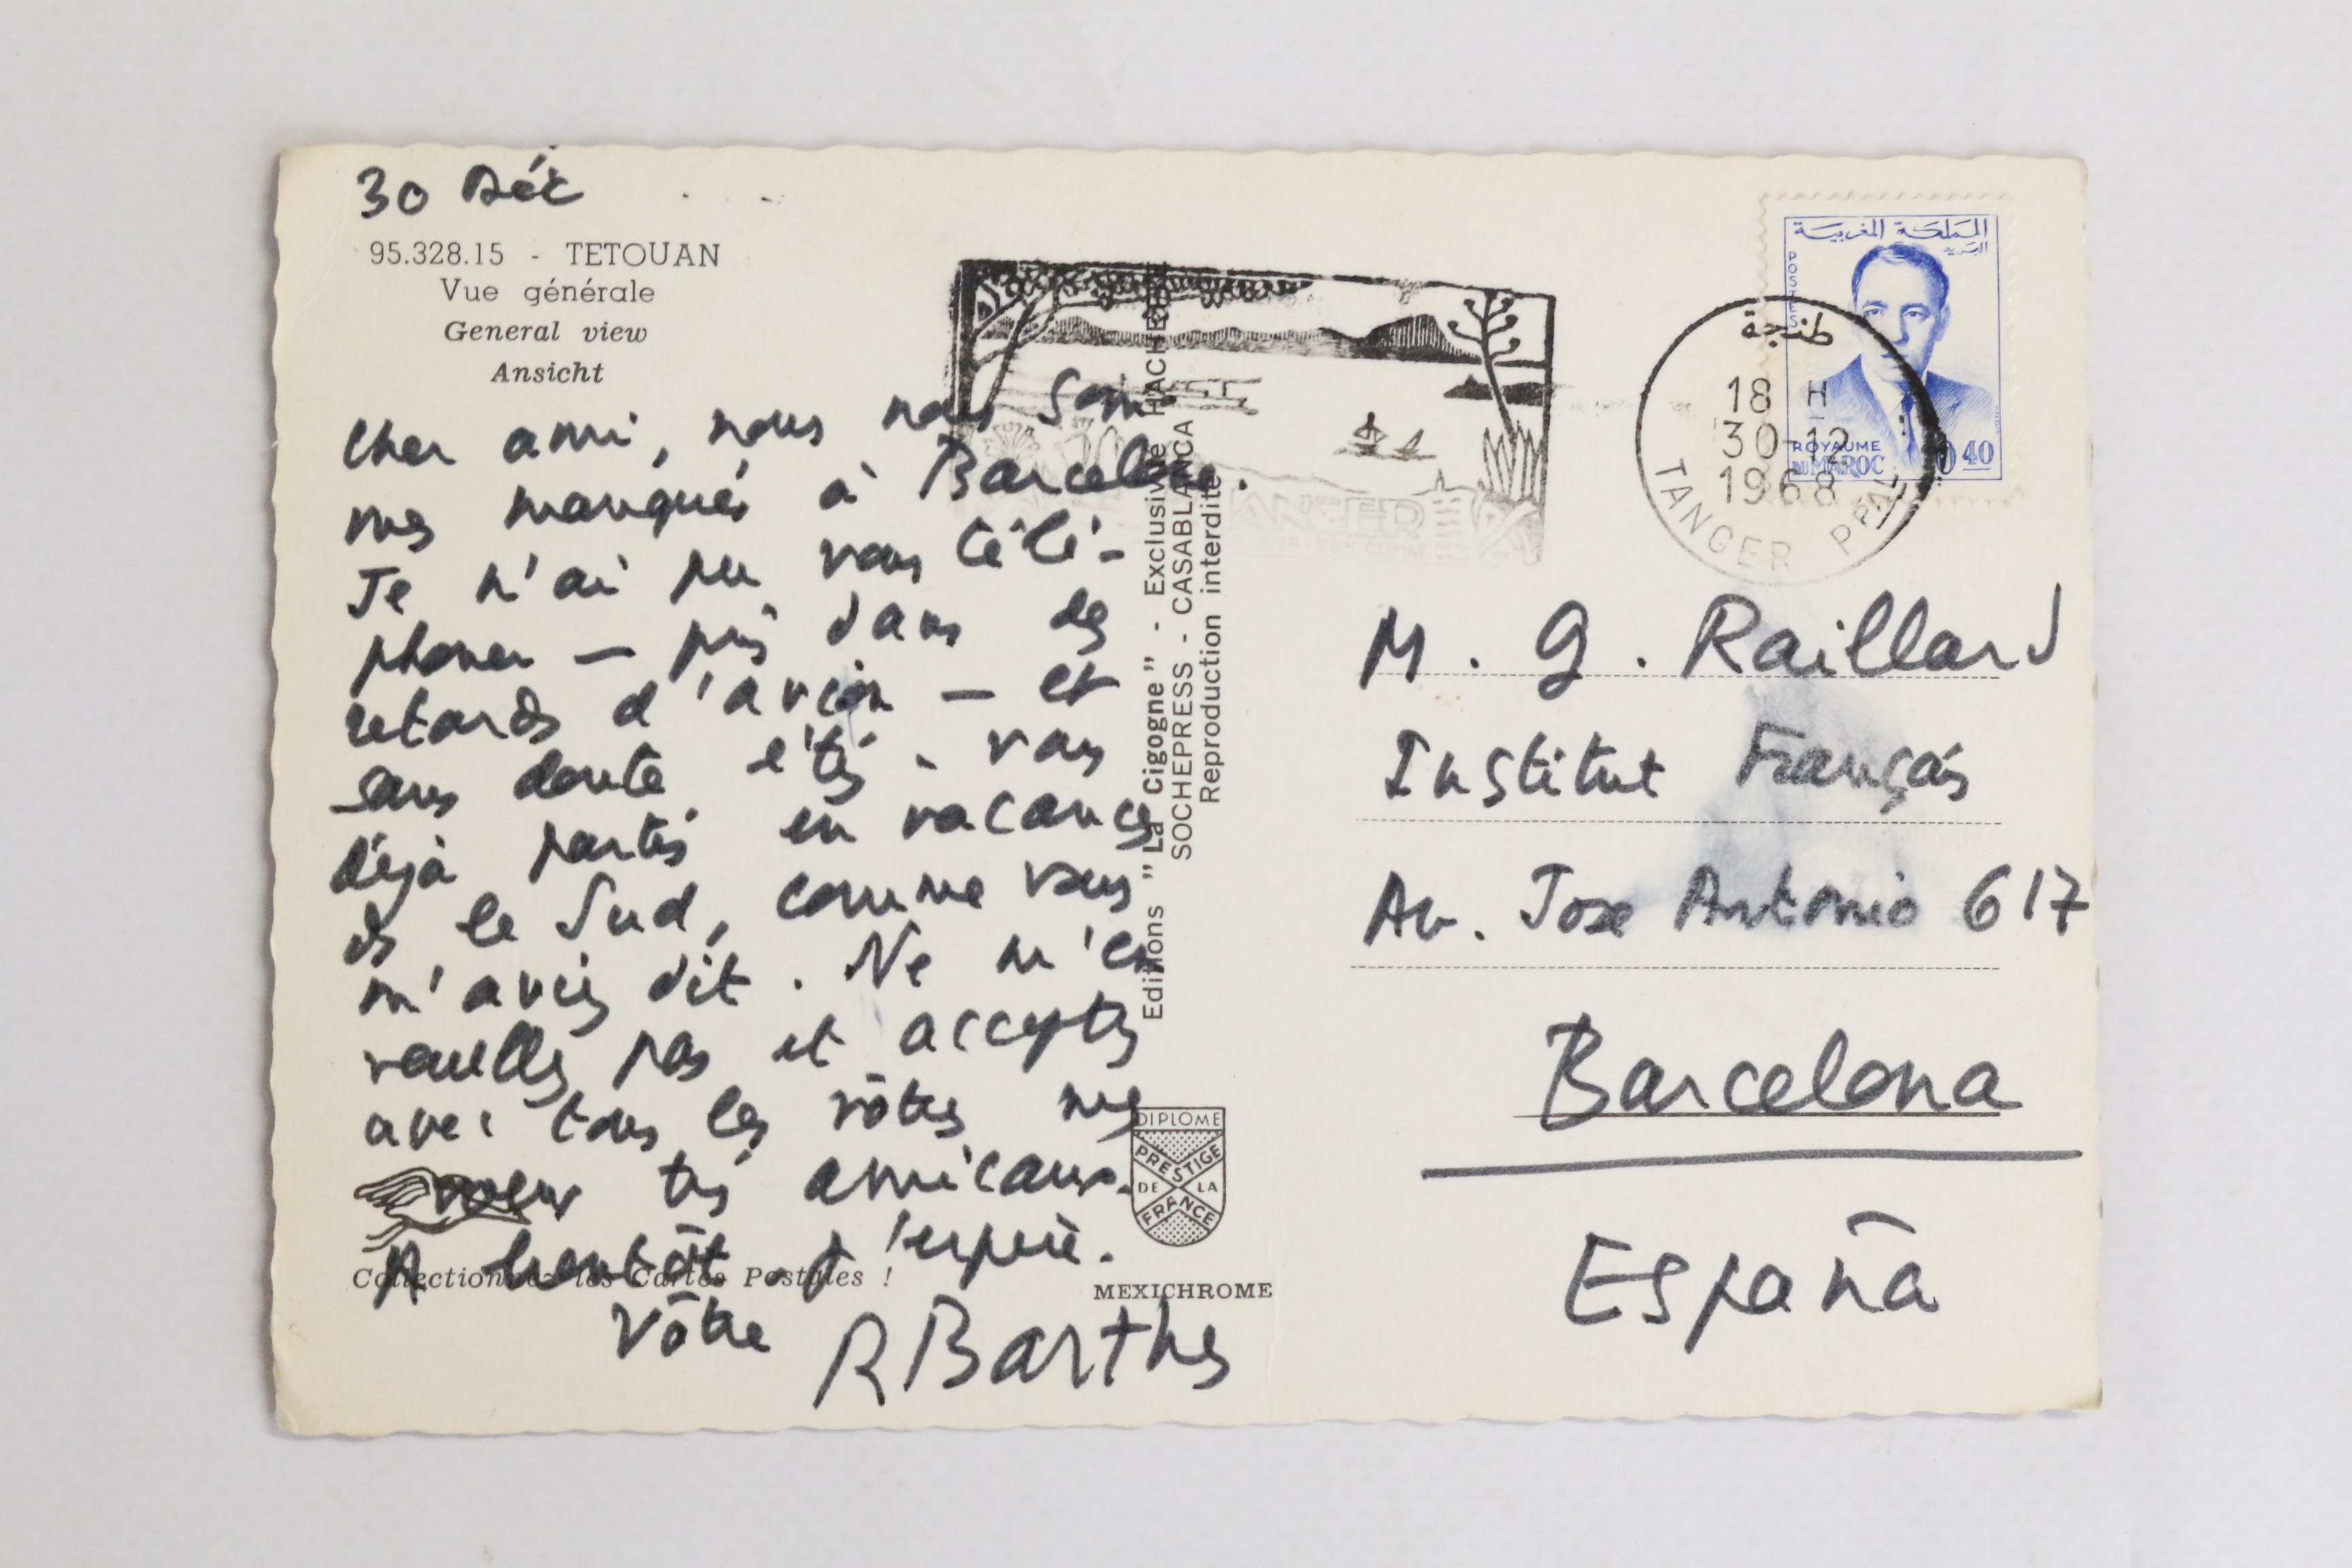 30 Déc
95.328.15 - TETOUAN
Vue générale
General view
Ansicht
Cher ami, nous nous som-
mes manqués à Barcelone.
Je n'ai pu vous télé-
phoner — pris dans des
retards d'avion — et
sans doute étiez-vous
déjà partis en vacances
ds le Sud, comme vous
m'aviez dit. Ne m'en
veuillez pas et acceptez
avec tous les vôtres mes
voeux très amicaux.
A bientôt j'espère.
Vôtre R Barthes
Collectionnez les Cartes Postales !
MEXICHROME
DIPLOME
PRESTIGE
DE LA
FRANCE
Editions "La Cigogne" - Exclusivité HACHETTE
SOCHEPRESS - CASABLANCA
Reproduction interdite
TANGER
المملكة المغربية
البريد
POSTES
ROYAUME
DU MAROC
0,40
طنجة
18 H
30-12
1968
TANGER PPAL
M. G. Raillard
Institut Français
Av. Jose Antonio 617
Barcelona
España